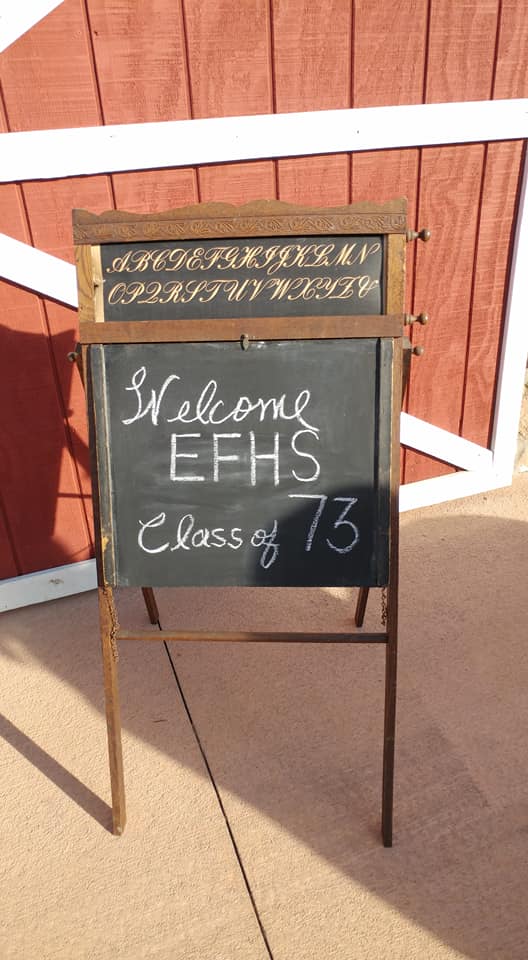 ABCDEFGHIJKLMN
OPQRSTUVWXYZ&
Welcome
EFHS
Class of 73